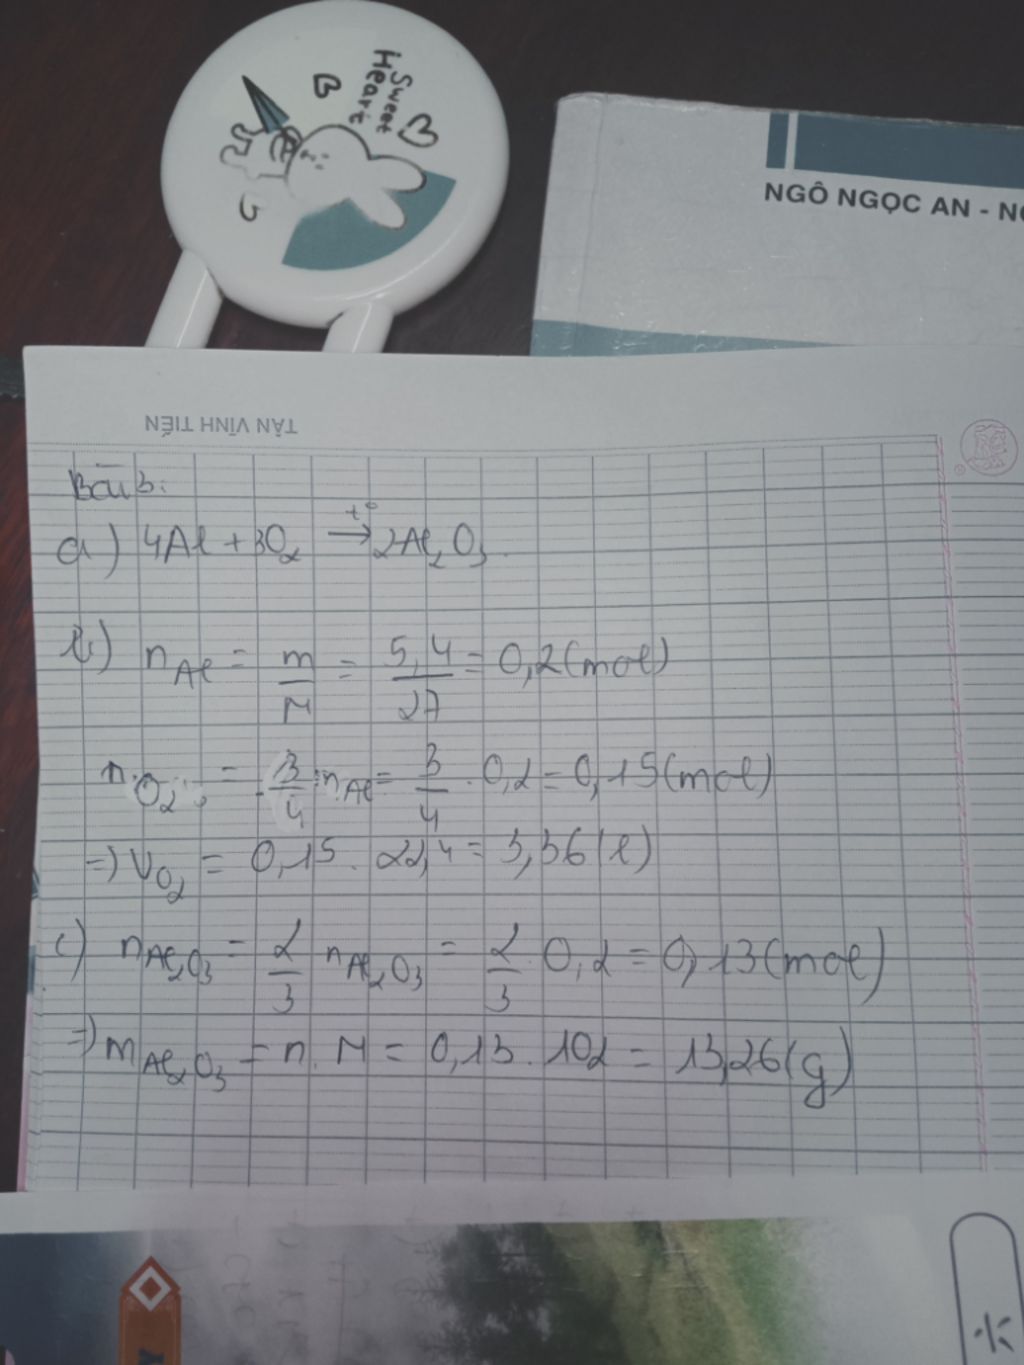 Sweet
Heart
NGÔ NGỌC AN - N
TÂN VĨNH TIẾN
Bài 3:
a) 4Al + 3O₂ →t° 2Al₂O₃.
b) nAl = m/M = 5,4/27 = 0,2 (mol)
nO₂ = 3/4 . nAl = 3/4 . 0,2 = 0,15 (mol)
=) VO₂ = 0,15 . 22,4 = 3,36 (l)
c) nAl₂O₃ = 2/3 nAl₂O₃ = 2/3 . 0,2 = 0,13 (mol)
=) mAl₂O₃ = n . M = 0,13 . 102 = 13,26 (g)